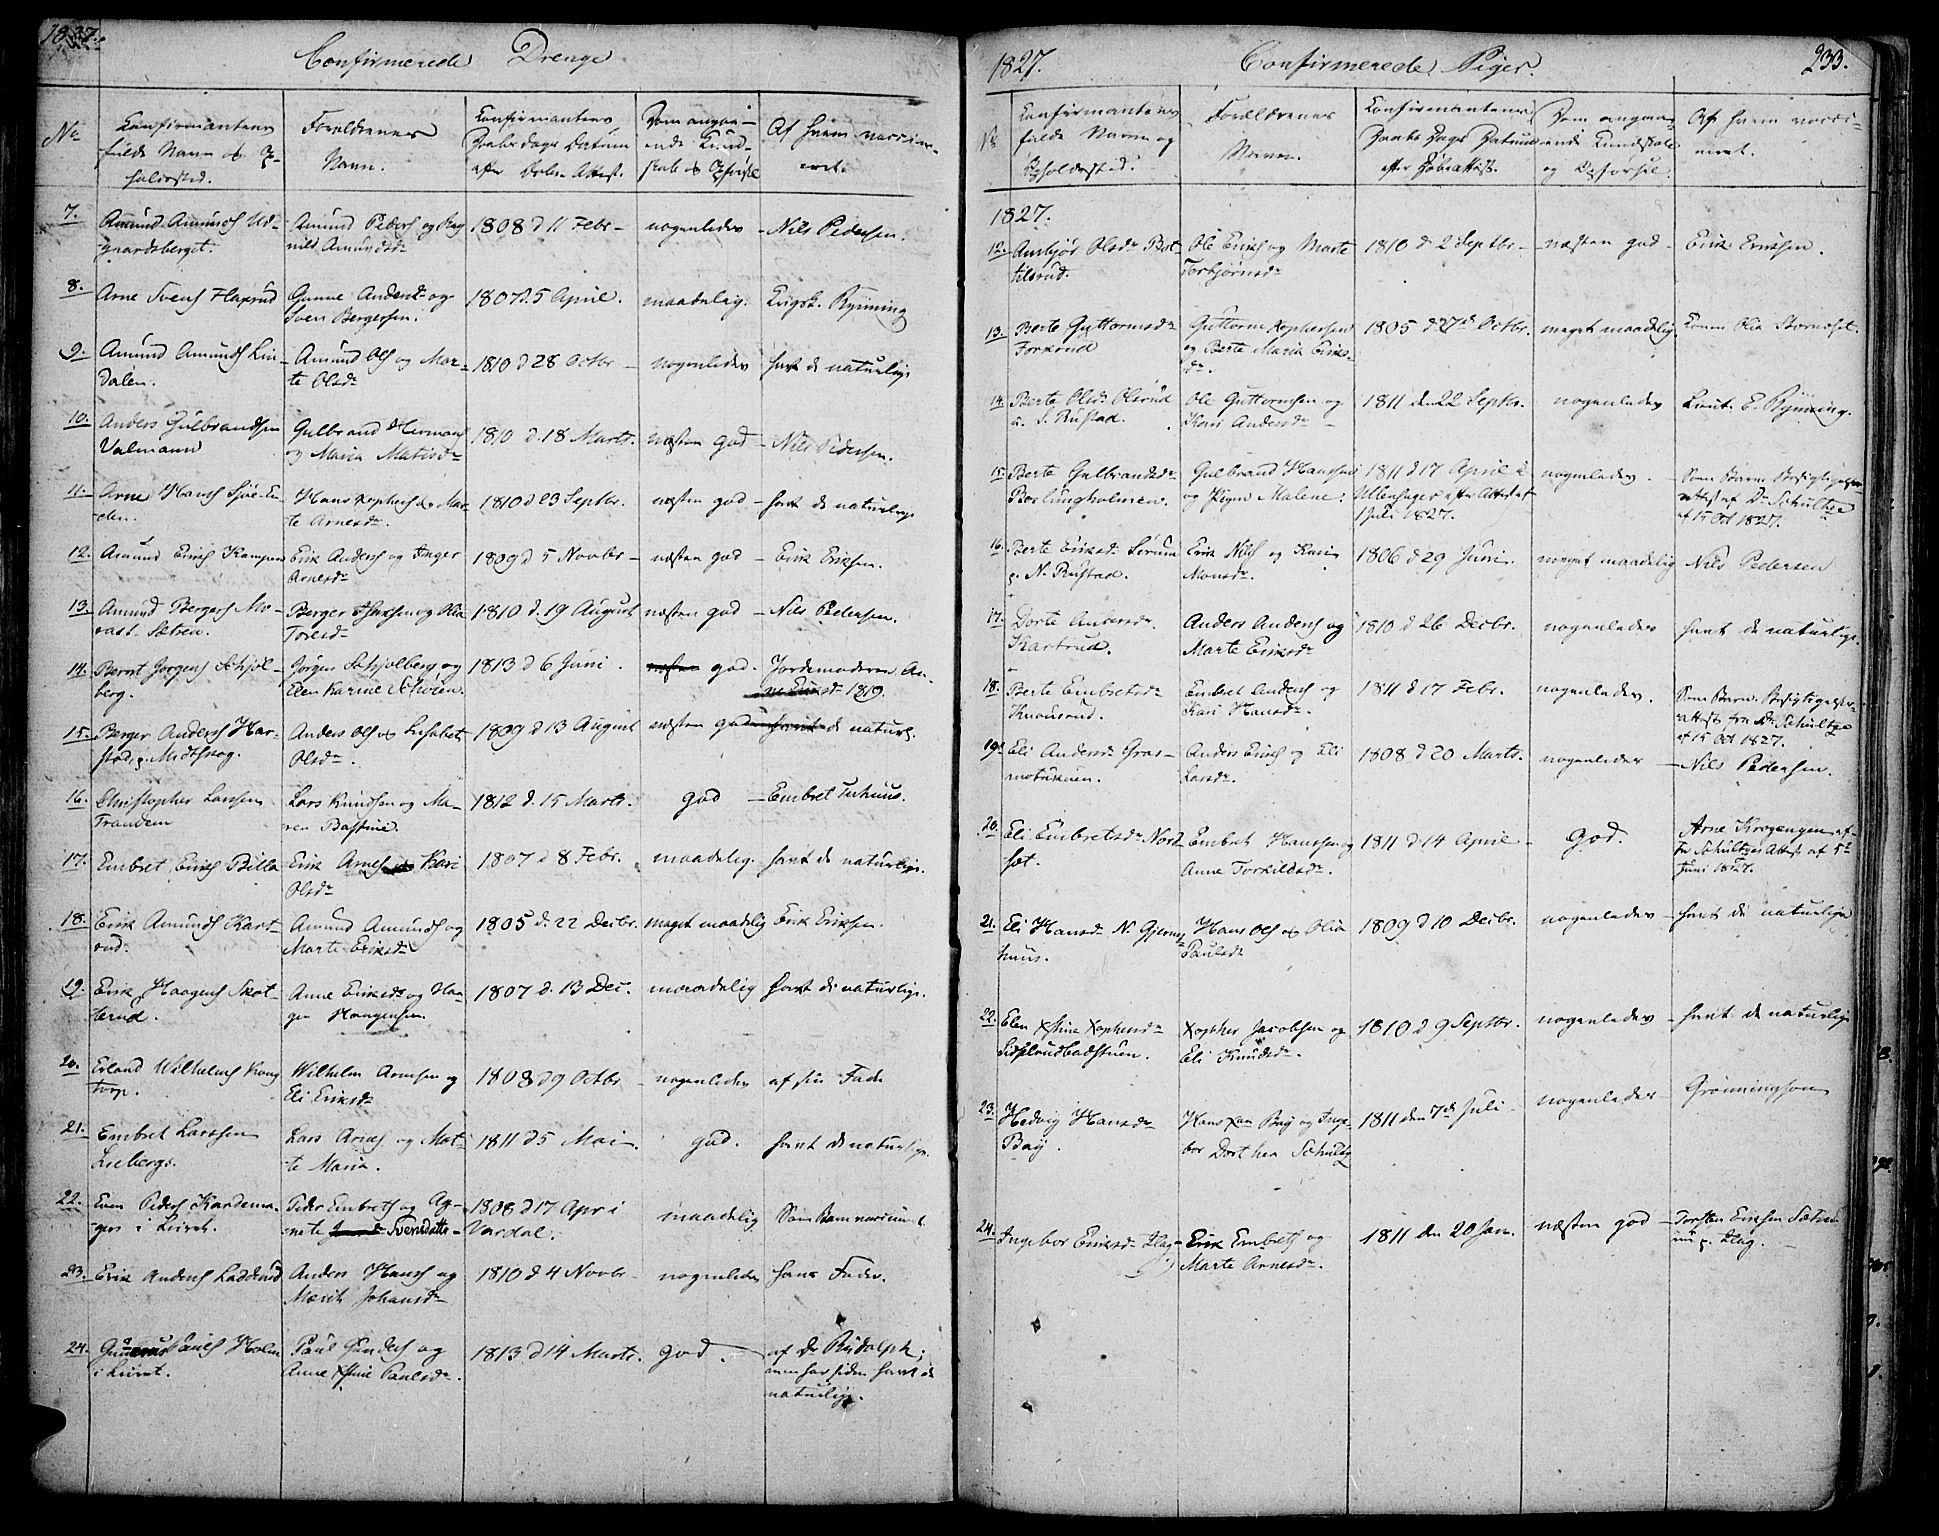 1827.
Confirmerede Drenge
No
Confirmantens
fulde Navn og Op-
holdssted.
Forældrenes
Navn.
Confirmantens
Daabsdags Datum
efter Døbe Attest.
Dom angaa-
ende Kund-
skab og Opførsel
Af hvem vaccin-
eret.
7. Amund Amunds Ud-
gaardsberget.
Amund Peders og Rag
nild Amundsdr
1808 d 11 Febr -
nogenledes
- Nils Pedersen.
8. Arne Svens Flaxrud
Gunne Andersdr og
Sven Bergersen.
1807 d. 5 April.
maadelig.
Krigsk. Rynning
9. Amund Amunds Lin-
dalen.
Amund Ols og Mar-
te Olsdr
1810 d 28 Octbr -
nogenledes
havt de naturlige
10. Anders Gulbrandsen
Valmann
Gulbrand Hermans
og Maria Matisdr
1810 d. 18 Marts.
næsten god
- Nils Pedersen.
11. Arne Hans Sjøl-En-
den.
Hans Xophers og Mar-
te Arnesdr
1810 d 23 Septbr.
næsten god
- havt de naturlige
12. Amund Eriks Kampen
Erik Anders og Inger
Arnesdr
1809 d 5 Novbr -
næsten god
- Erik Eriksen.
13. Amund Bergers Mo-
rast. Sætren.
Berger og Olia
Toresdr
1810 d. 19 August
næsten god
- Nils Pedersen.
14. Bernt Jørgens Schjøl-
berg.
Jørgen Schjølberg og
Elen Karine Schøien.
1813 d 6 Juni.
næsten god.
Jordemoderen An-
ne Eriksdr 1819.
15. Berger Anders Har-
stad, p. Midtskog.
Anders Ols og Lisabet
Olsdr.
1809 d 13 August
næsten god
havt de naturl.
16. Christopher Larssen
Trandem
Lars Knudsen og Ma-
ren Bastine.
1812 d. 15 Marts.
god
- Embret Turhuus.
17. Embret Eriks Billa
Erik Arnes og Kari
Olsdr
1807 d 8 Febr.
maadelig.
havt de naturlige.
18. Erik Amunds Kart-
rud.
Amund Amunds og
Marte Eriksdr
1805 d. 22 Decbr.
meget maadelig
Erik Eriksen.
19. Erik Haagens Skøt-
terud.
Anne Eriksdr og Haa-
gen Haagensen
1807 d. 13 Dec.
maadelig
havt de naturlige.
20. Erland Wilhelms Kong
torp.
Wilhelm Arnesen og
Eli Eriksdr
1808 d 9 Octbr
nogenledes
af sin Fader
21. Embret Larssen
Lieberg.
Lars Arnes og Mar-
te Maria.
1811 d 5 Mai
god.
havt de naturlige.
22. Even Peders Kardema-
ger i Leiret.
Peder Embrets og Ag-
nete Svensdatter
1808 d 17 Apr i
Vardal.
maadelig
Som Barn vaccinert
23. Erik Anders Ladderud
Anders Hans og
Marit Johansdr
1810 d 4 Novbr -
nogenledes
hans Fader.
24. Pauls Holm
i Leiret.
Paul Gunders og
Anne Xstine Paulsdr.
1813 d 14 Marts.
god.
af Dr Rudolph;
men har siden havt de
naturlige.
1827.
Confirmerede Piger.
233.
No
Confirmantens
fulde Navn og
Opholdssted.
Forældrenes
Navne.
Confirmantens
Daabs Dags Datum
efter Døbeattest.
Dom angaa-
ende Kundskab
og Opførsel.
Af hvem vacci-
neret.
1827.
12. Ambjør Olsdr Bot-
tilsrud.
Ole Eriks og Marte
Torbjørnsdr
1810 d 2 Septbr -
næsten god -
Erik Eriksen.
13. Berte Guttormsdr
Forkerud
Guttorm Xophersen
og Berte Maria Eriks-
dr.
1805 d 27d Octbr.
meget maadelig.
Konen Olia Stornæset.
14. Berte Olsdr Olsrud
u. S. Rustad.
Ole Guttormsen og
Kari Andersdr -
1811 den 22 Septbr.
nogenledes
Lieut. E. Rynning.
15. Berte Gulbrandsdr
Borlungholmen.
Gulbrand Hanssen
og Pigen Malene:
1811 d 17 April i
Ullensager efter Attest af
1 Juli 1827.
nogenledes.
Som Barn. Besigtigelses-
Attest af Dr Schultze
af 15 Oct 1827.
16. Berte Eriksdr Sørum
p. N. Rustad.
Erik Nils og Kari
Monsdr.
1806 d 29 Juni.
meget maadelig
Nils Pedersen
17. Dorte Andersdr.
Kartrud.
Anders Anders og
Marte Eriksdr
1810 d 26 Decbr.
nogenledes
havt de naturlige.
18. Berte Embretsdr
Knausrud.
Embret Anders og
Kari Hansdr.
1811 d 17 Febr.
nogenledes.
Som Barn. Besigtigelses-
Attest fra Dr Schultze
af 15 Oct 1827.
19. Eli Andersdr Gras-
motskuen.
Anders Eriks og Eli
Larsdr.
1808 d 20 Marts.
nogenledes
- Nils Pedersen.
20. Eli Embretsdr Nord
set.
Embret Hanssen og
Anne Torkildsdr.
1811 d 14 April -
God.
Arne Krogengen af-
Fr Schultzes Attest af 5te
Juni 1827.
21. Eli Hansdr N. Gjernes
huus.
Hans Ols og Olia
Paulsdr
1809 d 10 Decbr.
nogenledes
- havt de naturlige
22. Elen Xstine Xophersdr
Xopher Jacobsen og
Eli Knudsdr.
1810 d 9 Septbr.
nogenledes
- havt de naturlige
23. Hedvig Hansdr
Bøy.
Hans Xan Bøy og Inge-
bor Dorthea Schultz
1811 den 7de Juli -
nogenledes
- Grønningson
24. Ingebor Eriksdr Flag-
Erik Embrets og
Marte Arnesdr.
1811 den 20 Jan.
næsten god
- Torsten Eriksen Sætra
p. Flag.